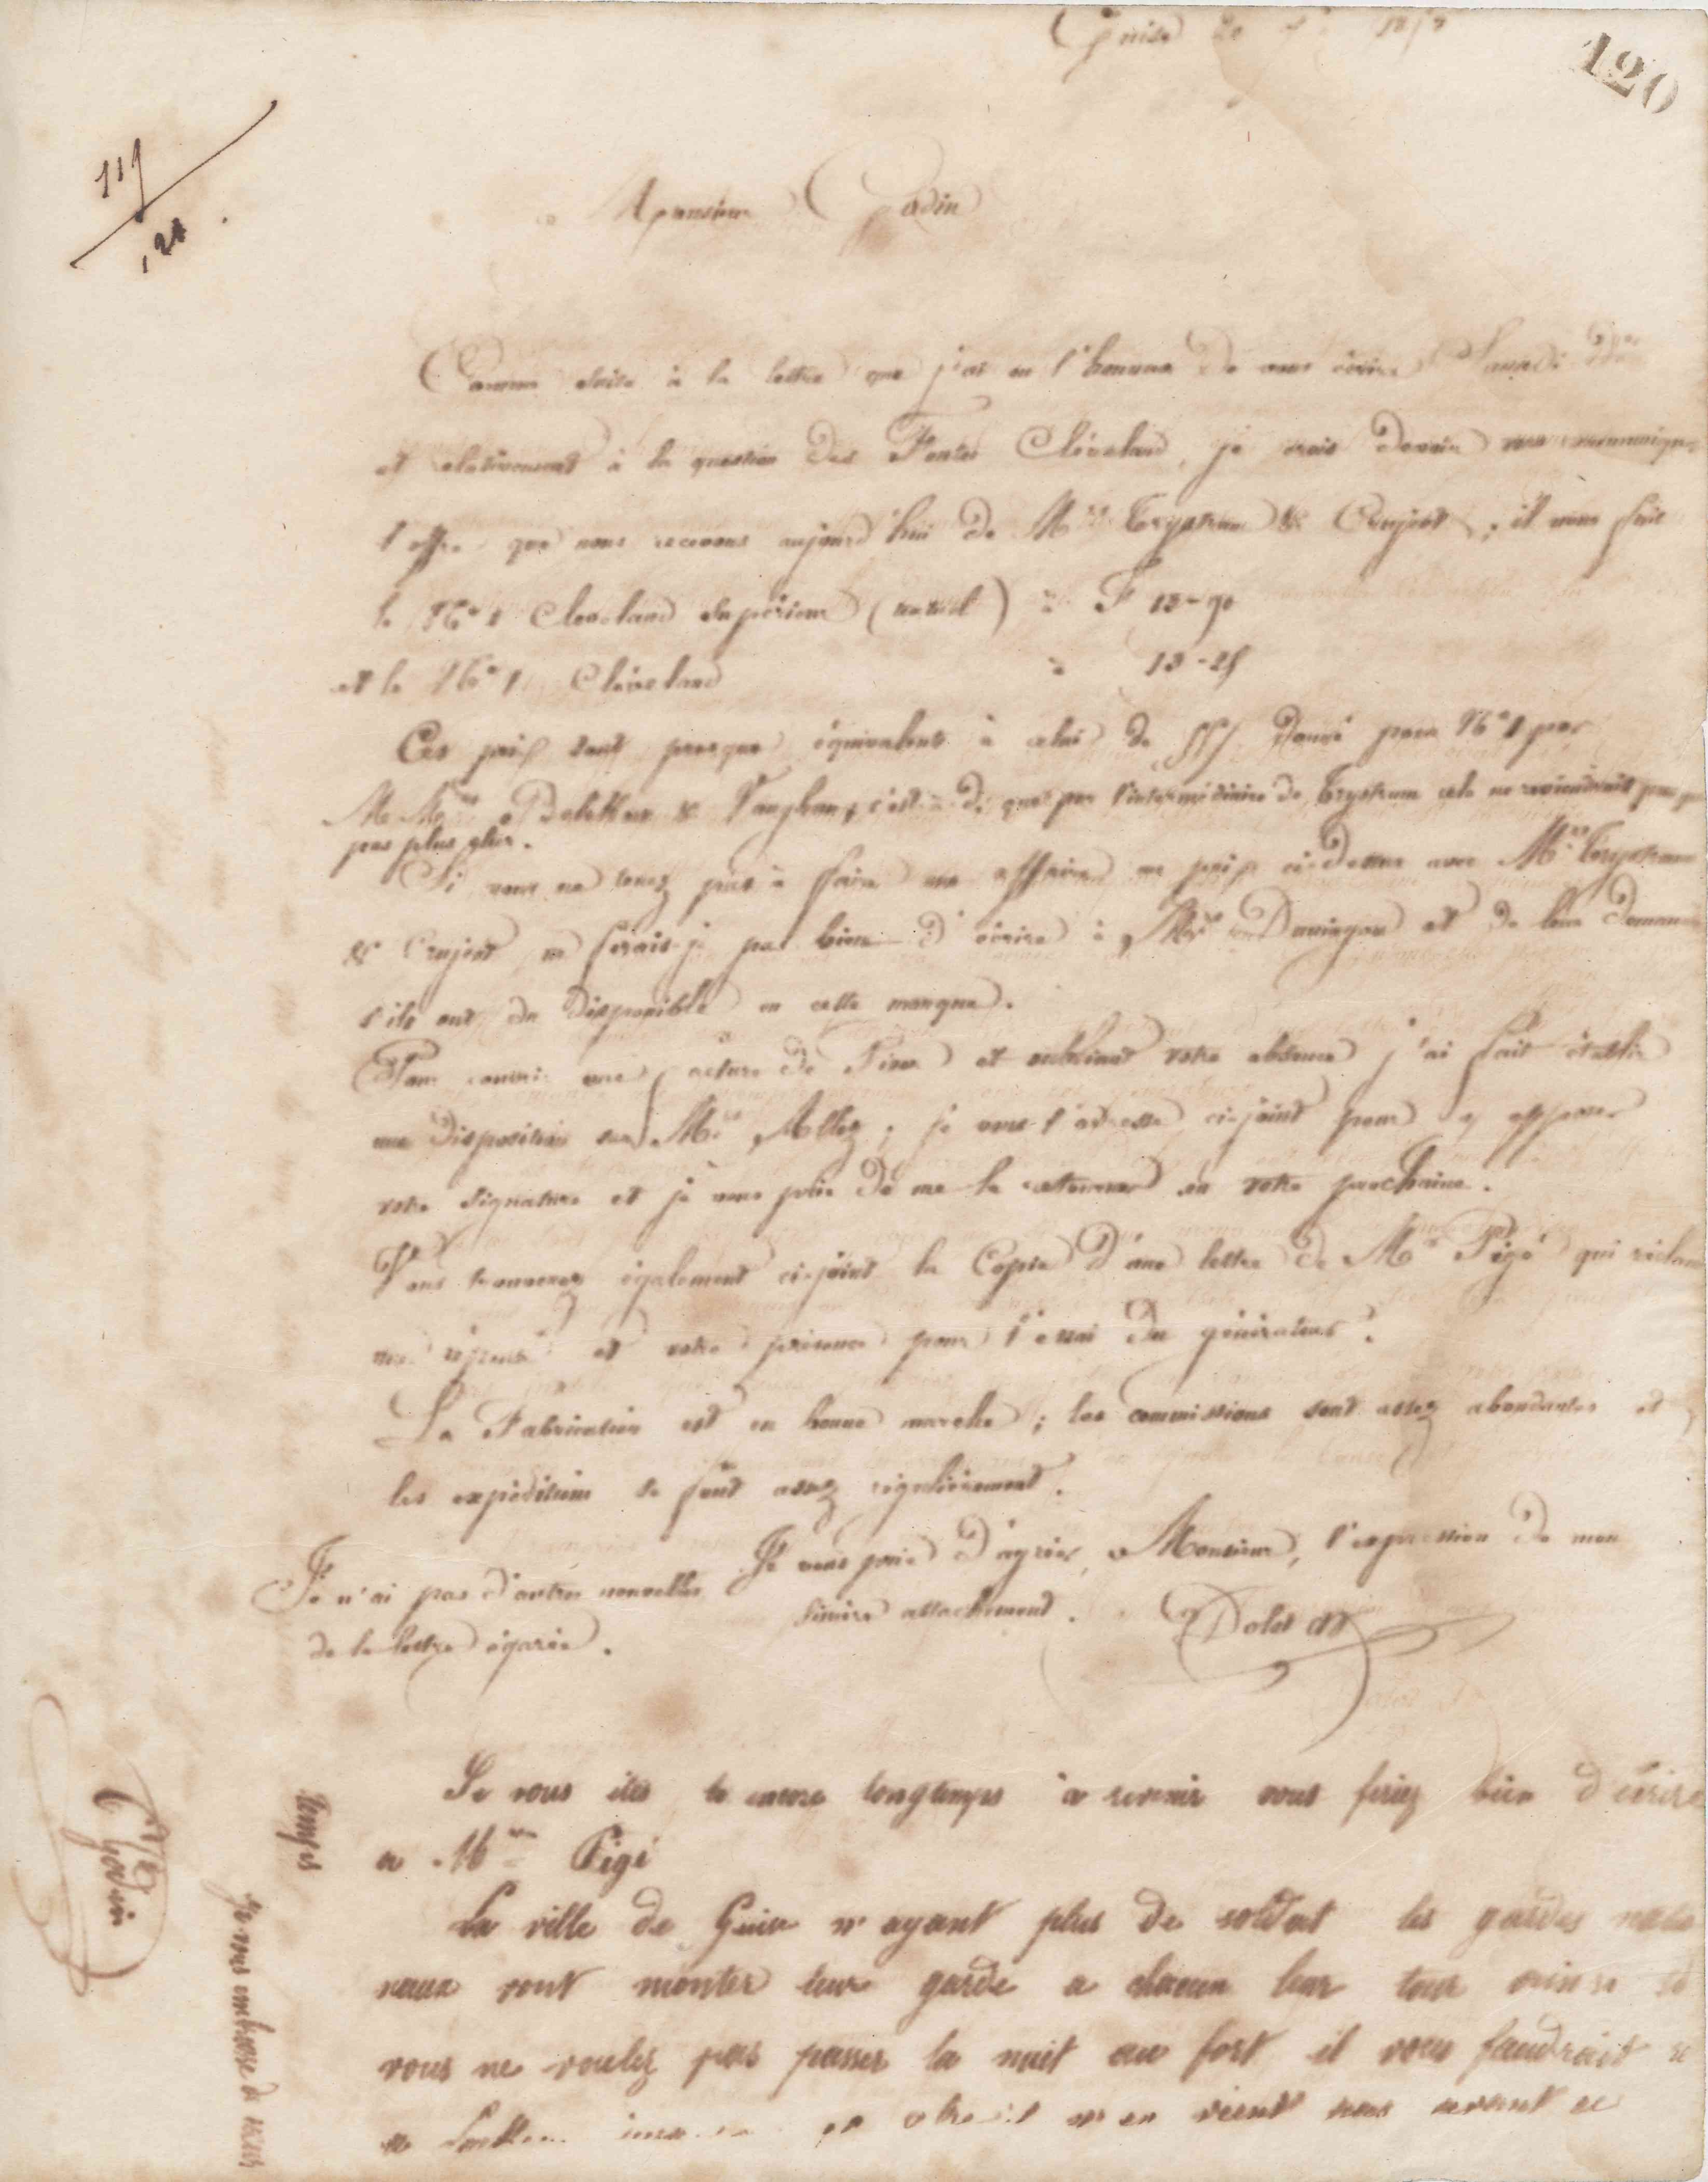 Guise 20
120
119
120.
Monsieur Godin
Comme suite à la lettre que j'ai eu l'honneur de vous écrire Samedi
et relativement à la question des Fontes Cléveland, je crois devoir vous communiquer
l'offre que nous recevons aujourd'hui de M.rs Trystram & Crujeot ; il nous fait
le N° 1 Cleveland Supérieur ( ) à F 13-90
et le N° 1 Cléveland à 13-25
Ces prix sont presque équivalents à celui de donné pour N° 1 par
M.M. & Vaughan, c'est-à-d. que par l'intermédiaire de Trystram cela ne reviendrait pas
pas plus cher.
Si vous ne tenez pas à faire une affaire au prix ci-dessus avec M.rs Trystram
& Crujeot ne ferais-je pas bien d'écrire à M.rs et de leur demander
s'ils ont du disponible en cette marque.
Pour couvrir une facture de et oubliant votre absence j'ai fait établir
une disposition sur M.rs Allez ; je vous l'adresse ci-joint pour y apposer
votre signature et je vous prie de me la retourner en votre prochaine.
Vous trouverez également ci-joint la Copie d'une lettre de M.r Pigé qui réclame
une réponse et votre présence pour l'essai du générateur.
La Fabrication est en bonne marche ; les commissions sont assez abondantes et
les expéditions se font assez régulièrement.
Je vous prie d'agréer, Monsieur, l'expression de mon
sincère attachement.
Je n'ai pas d'autres nouvelles
de la lettre égarée.
Si vous êtes encore longtemps à revenir vous feriez bien d'écrire
a M Pigé
La ville de Guise n'ayant plus de soldat les gardes
naux vont monter leur garde a chacun leur tour ainsi si
vous ne voulez pas passer la nuit au fort il vous faudrait
en vient nous avant ce
temps
Je vous embrasse de cœur
Godin